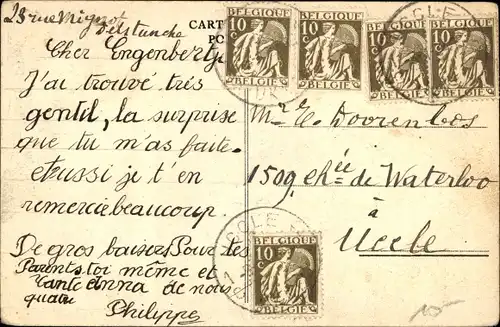 23 rue Mignot
Delstanche
CART
PO
Cher Engenbertje
J'ai trouvé très
gentil, la surprise
que tu m'as faite
et aussi je t'en
remercie beaucoup.
De gros baisers Pour tes
Parents toi même et
tante Anna de nous
quatre
Philippe
BELGIQUE
10 c
BELGIË
BELGIQUE
10 c
BELGIË
BELGIQUE
10 c
BELGIË
BELGIQUE
10 c
BELGIË
CLE
Mr E. Doorenbos
1509 chée de Waterloo
à
Uccle
CCLE
BELGIQUE
10 c
BELGIË